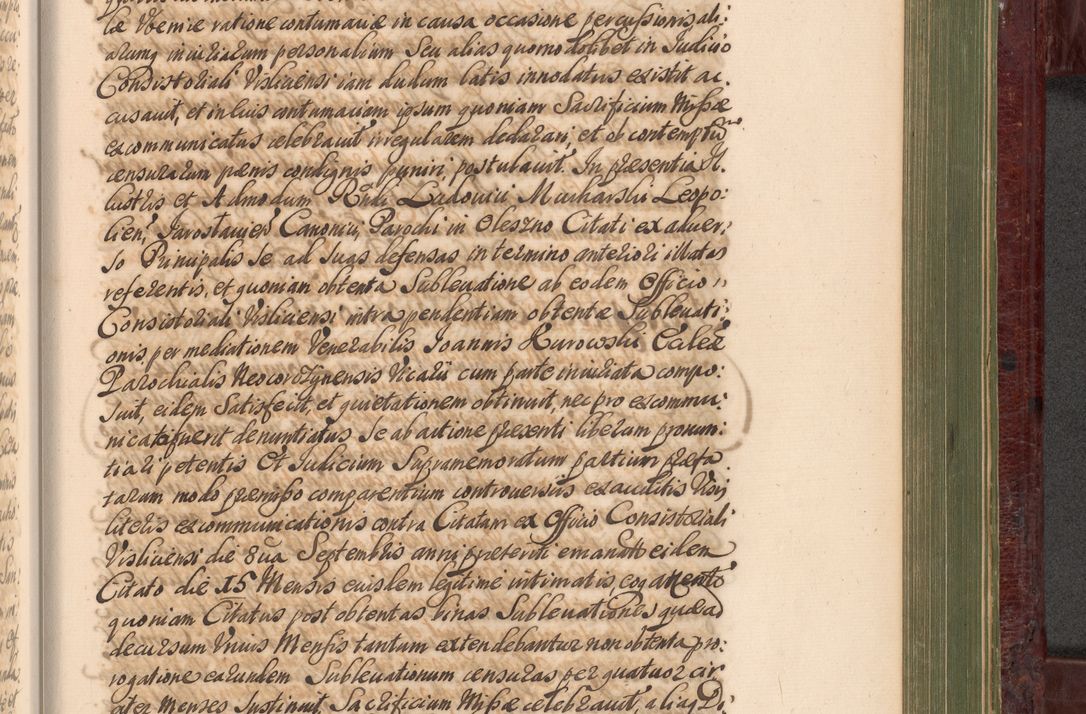 ratione contumaciæ in causa occasione percussionis ali:
arumq iniuriarum personalium Seu alias quomodolibet in Iudicio
Consistoriali Visliciensi iam dudum latis innodatus existit ac:
cusauit, et in eius contumaciam ipsum quoniam Sacrificium Missæ
excommunicatus celebrauit irregularem declarari, et ob contemptũ
censurarum pænis condignis puniri, postulauit. In præsentia Il:
lustris et Admodum Rñdi Ludouici Mucharski Leopo:
lien, Iaroslauien Canonici, Parochi in Oleszno Citati ex aduer:
so Principalis se ad suas defensas in termino anteriori illatas
referentis, et quoniam obtenta Subleuatione ab eodem Officio
Consistoriali Visliciensi intra pendentiam obtentæ Subleuati:
onis, per mediationem Venerabilis Ioannis Kurowski Eccleæ
Parochialis Neocorczynensis Vicarii cum parte iniuriata compo:
suit, eidem Satisfecit, et quietationem obtinuit, nec pro excommu:
nicato fuerit denuntiatus Se ab actione præsenti liberum pronun:
tiari petentis Et Iudicium Supramemoratum partium præfa:
tarum modo præmisso comparentium controuersiis exauditis Visis
literis excommunicationis contra Citatum ex Officio Consistoriali
Visliciensi die 8ua Septembris anni præteriti emanatt eidem
Citato die 15 Mensis eiusdem legitime intimatis,
quoniam Citatus post obtentas binas Subleuationes quæ ad
decursum Vnius Mensis tantum extendebantur non obtenta pro:
rogatione earundem Subleuationum censuras per quatuor cir:
citer Menses Sustinuit, Sacrificium Missæ celebrauit, aliaq Di: